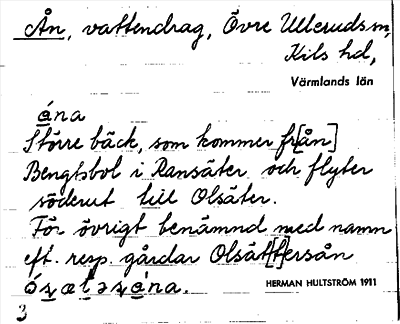 Ån, vattendrag, Övre Ulleruds sn,
Kils hd,
Värmlands län
åna
Större bäck, som kommer fr[ån]
Bengtsbol i Ransäter och flyter
söderut till Olsäter.
För övrigt benämnd med namn
eft. resp. gårdar Olsät[t]ersån
HERMAN HULTSTRÖM 1911
3